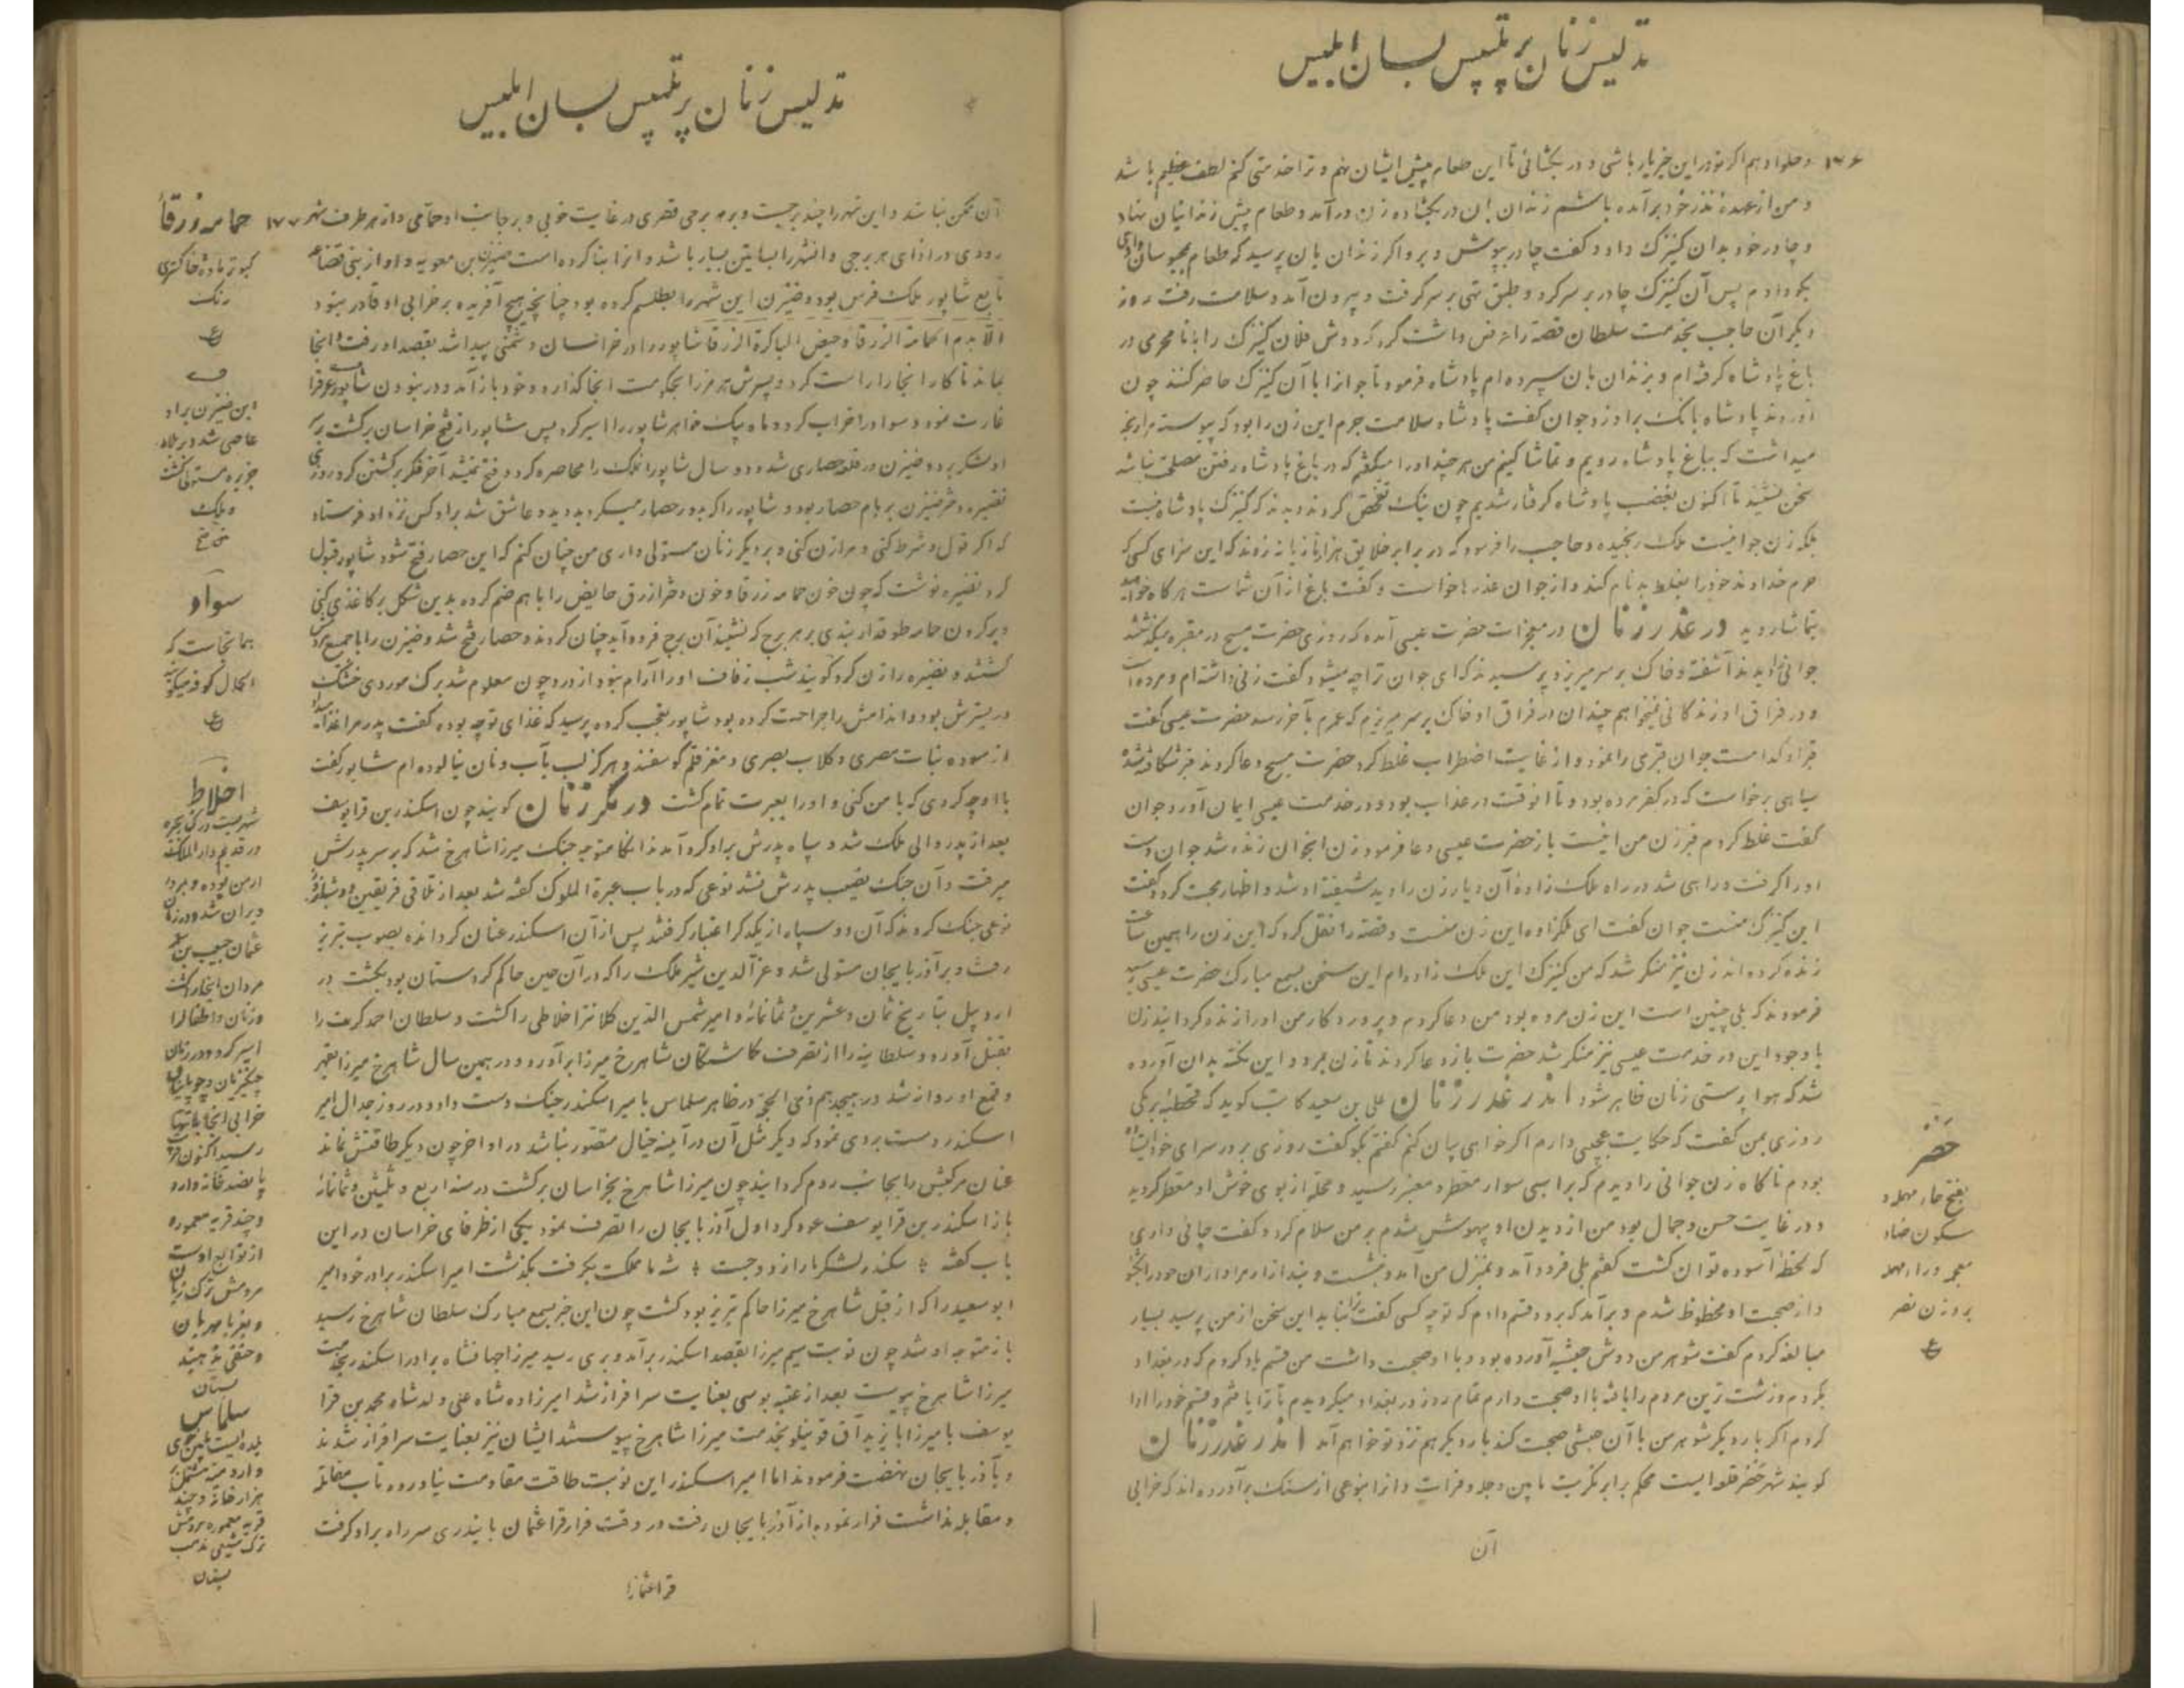 تدلیس زنان پر تلبیس بسان ابلیس
۱۷۶ و حلوا دهم اگر تو در این خیر یار باشی و در بگشائی تا این طعام پیش ایشان نهم و ترا خدمتی کنم لطف عظیم باشد
و من از عهده نذر خود برآمده باشم زندان بان در بگشاد زن درآمد و طعام پیش زندانیان نهاد
و چادر خود بدان کنیزک داد و گفت چادر بپوش و برو اگر زندان بان پرسید که طعام محبوسان دادی
بگو دادم پس آن کنیزک چادر بر سر کرد و طبق تهی بر سر گرفت و بیرون آمد و سلامت رفت روز
دیگر آن حاجب بخدمت سلطان قصه را عرض داشت کرد که دوش فلان کنیزک را با نامحرمی در
باغ پادشاه گرفته‌ام و بزندان بان سپرده‌ام پادشاه فرمود تا جوانرا با آن کنیزک حاضر کنند چون
آوردند پادشاه بانگ براو زد جوان گفت پادشاه سلامت جرم این زن را بود که پیوسته مرا رنجه
میداشت که بباغ پادشاه رویم و تماشا کنیم من هر چند او را میگفتم که در باغ پادشاه رفتن مصلحت نباشد
سخن نشنید تا اکنون بغضب پادشاه گرفتار شدیم چون نیک تفحص کردند دیدند که کنیزک پادشاه نیست
بلکه زن جوانیست ملک رنجیده و حاجب را فرمود که در برابر خلایق هزار تازیانه زدند که این سزای کسی که
حرم خداوند خود را بغلط بدنام کند و از جوان عذرها خواست و گفت باغ از آن شما است هر گاه خواهید
بتماشا روید در غدر زنان در معجزات حضرت عیسی آمده که روزی حضرت مسیح در مقبره میگذشتند
جوانی را دیدند آشفته و خاک بر سر میریزد پرسیدند که ای جوان ترا چه میشود گفت زنی داشته‌ام و مرده است
و در فراق او زندگانی نمیخواهم چندان در فراق او خاک بر سر میریزم که عمرم بآخر رسد حضرت عیسی گفت
قبر او کدامست جوان قبری را نمود و از غایت اضطراب غلط کرد حضرت مسیح دعا کردند قبر شکافته شد
سیاهی برخاست که در کفر مرده بود و تا آنوقت در عذاب بود و در خدمت عیسی ایمان آورد جوان
گفت غلط کردم قبر زن من اینست باز حضرت عیسی دعا فرمود زن آنجوان زنده شد جوان دست
او را گرفت و راهی شد در راه ملک زاده آن دیار زن را دید شیفته او شد و اظهار محبت کرد و گفت
این کنیزک منست جوان گفت ای ملکزاده این زن منست و قصه را نقل کرد که این زن را همین ساعت
زنده کرده‌اند زن نیز منکر شد که من کنیزک این ملک زاده‌ام این سخن بسمع مبارک حضرت عیسی رسید
فرمودند که بلی چنین است این زن مرده بود من دعا کردم و پروردگار من او را زنده گردانید زن
با وجود این در خدمت عیسی نیز منکر شد حضرت باز دعا کردند تا زن بمرد و این نکته بدان آورده
شد که هوا پرستی زنان ظاهر شود اندر غدر زنان علی بن سعید کاتب گوید که قحطبه برمکی
روزی بمن گفت که حکایت عجیبی دارم اگر خواهی بیان کنم گفتم بگو گفت روزی بر در سرای خود ایستاده
بودم ناگاه زن جوانی را دیدم که بر اسبی سوار معطر و معنبر رسید و محله از بوی خوش او معطر گردید
و در غایت حسن و جمال بود من از دیدن او بیهوش شدم بر من سلام کرد و گفت جائی داری
که لحظه آسوده توان گشت گفتم بلی فرود آمد و بمنزل من آمد و نشست و بند ازار مرا و ازان خود را بگشود
و از صحبت او محظوظ شدم و برآمد که برود قسم دادم که تو چه کسی گفت ترا نباید این سخن از من پرسید بسیار
مبالغه کردم گفت شوهر من دوش حبشیه آورده بود و با او صحبت داشت من قسم یاد کردم که در بغداد
بگردم و زشت ترین مردم را یافته با او صحبت دارم تمام روز در بغداد میگردیدم تا ترا یافتم و قسم خود را ادا
کردم اگر بار دیگر شوهر من با آن حبشی صحبت کند بار دیگر هم نزد تو خواهم آمد اندر غدر زنان
گویند شهر حضر قلعه ایست محکم برابر تکریت مابین دجله و فرات و آنرا بنوعی از سنگ برآورده‌اند که خرابی
آن
حضر
بفتح حاء مهمله و
سکون ضاد
معجمه و راء مهمله
بر وزن نصر
تدلیس زنان پر تلبیس بسان ابلیس
آن ممکن نباشد و این شهر را چند برجست و بر هر برجی قصری در غایت خوبی و بر جانب او حمامی و از هر طرف شهر ۱۷۷
رودی در ازای هر برجی و آنشهر را بساتین بسیار باشد و آنرا بنا کرده است ضیزن بن معویه و او از بنی قضاعه
تابع شاپور ملک فرس بود و ضیزن این شهر را بطلسم کرده بود چنانچه هیچ آفریده بر خرابی او قادر نبود
الا بدم الحمامة الزرقاء و حیض الباکرة الزرقا شاپور را در خراسان دشمنی پیدا شد بقصد او رفت و آنجا
بماند تا کار آنجا را راست کرد و پسرش هرمز را بحکومت آنجا گذارد و خود باز آمد و در نبودن شاپور
غارت نمود و سواد را خراب کرد و ماه یک خواهر شاپور را اسیر کرد پس شاپور از فتح خراسان برگشت بر
او لشکر برد و ضیزن در قلعه حصاری شد و دو سال شاپور آنملک را محاصره کرد و فتح نمیشد آخر فکر برگشتن کرد روزی
نضیره دختر ضیزن بر بام حصار بود و شاپور را که بدور حصار میگردید دید و عاشق شد براو کس نزد او فرستاد
که اگر قول و شرط کنی و مرا زن کنی و بر دیگر زنان مستولی داری من چنان کنم که این حصار فتح شود شاپور قبول
کرد نضیره نوشت که چون خون حمامه زرقا و خون دختر ازرق حایض را با هم ضم کرده بدین شکل بر کاغذی کنی
و بر گردن حمامه طوقدار بندی بر هر برج که نشیند آن برج فرود آید چنان کردند و حصار فتح شد و ضیزن را با جمیع
کشتند و نضیره را زن کرد گویند شب زفاف او را آرام نبود از درد چون معلوم شد برگ موردی خشک
در بسترش بود و اندامش را جراحت کرده بود شاپور تعجب کرده پرسید که غذای تو چه بوده گفت پدر مرا غذا
از سوده نبات مصری و گلاب بصری و مغز قلم گوسفند و هرگز لب بآب و نان نیالوده‌ام شاپور گفت
با او چه کردی که با من کنی و او را بعبرت تمام کشت در مکر زنان گویند چون اسکندر بن قرا یوسف
بعد از پدر والی ملک شد و سپاه پدرش براو گرد آمدند آنگاه متوجه جنگ میرزا شاهرخ شد که بر سر پدرش
میرفت و آن جنگ نصیب پدرش نشد نوعی که در باب عبرة الملوک گفته شد بعد از تلاقی فریقین دو شبانروز
نوعی جنگ کردند که آن دو سپاه از یکدگر اعتبار گرفتند پس از آن اسکندر عنان گردانده بصوب تبریز
رفت و بر آذربایجان مستولی شد و عزالدین شیر ملک را که در آن حین حاکم کردستان بود بکشت در
اردبیل بتاریخ ثمان و عشرین و ثمانمائه و امیر شمس الدین کلانتر اخلاطی را کشت و سلطان احمد کرد را
بقتل آورد و سلطانیه را از تصرف گماشتگان شاهرخ میرزا برآورد و در همین سال شاهرخ میرزا بقهر
و قمع او روانه شد در هیجدهم ذی الحجه در ظاهر سلماس با میر اسکندر جنگ دست داد و در روز جدال امیر
اسکندر دست بردی نمود که دیگر مثل آن در آینه خیال متصور نباشد در اواخر چون دیگر طاقتش نماند
عنان مرکبش را بجانب روم گردانید چون میرزا شاهرخ بخراسان برگشت در سنه اربع و ثلثین و ثمانمائه
باز اسکندر بن قرا یوسف عود کرد اول آذربایجان را تصرف نمود یکی از ظرفای خراسان در این
باب گفته * سکندر لشکر ما را زد و جست * شه ما مملکت بگرفت بگذشت امیر اسکندر برادر خود امیر
ابوسعید را که از قبل شاهرخ میرزا حاکم تبریز بود کشت چون این خبر بسمع مبارک سلطان شاهرخ رسید
باز متوجه او شد چون نوبت سیم میرزا بقصد اسکندر برآمد و بری رسید میرزا جهانشاه برادر اسکندر بخدمت
میرزا شاهرخ پیوست بعد از عتبه بوسی بعنایت سرافراز شد امیرزاده شاه علی ولد شاه محمد بن قرا
یوسف با میرزا بایزید آق قوینلو بخدمت میرزا شاهرخ پیوستند ایشان نیز بعنایت سرافراز شدند
و بآذربایجان نهضت فرمودند اما امیر اسکندر این نوبت طاقت مقاومت نیاورده و تاب مقاتله
و مقابله نداشت فرار نموده از آذربایجان رفت در وقت فرار قرا عثمان بایندری سر راه براو گرفت
قرا عثمان را
حمامه زرقا
کبوتر ماده خاکستری
رنک
این ضیزن براو
عاصی شد و بر بلاد
جزیره مستولی گشت
و ملک
سواد
اخلاط
در قدیم دار الملک
ارمن بوده
ویران شد و در زمان
عثمان حبیب بن
مردان آنجا را کشت
وزنان و اطفال را
اسیر کرد و در زمان
خرابی آنجا
رسید اکنون
پانصد خانه دارد
و چند قریه معموره
از توابع اوست
مردمش ترک زبان
و حنفی مذهبند
سلماس
هزار خانه و چند
قریه معموره مردمش
ترک شیعی مذهب